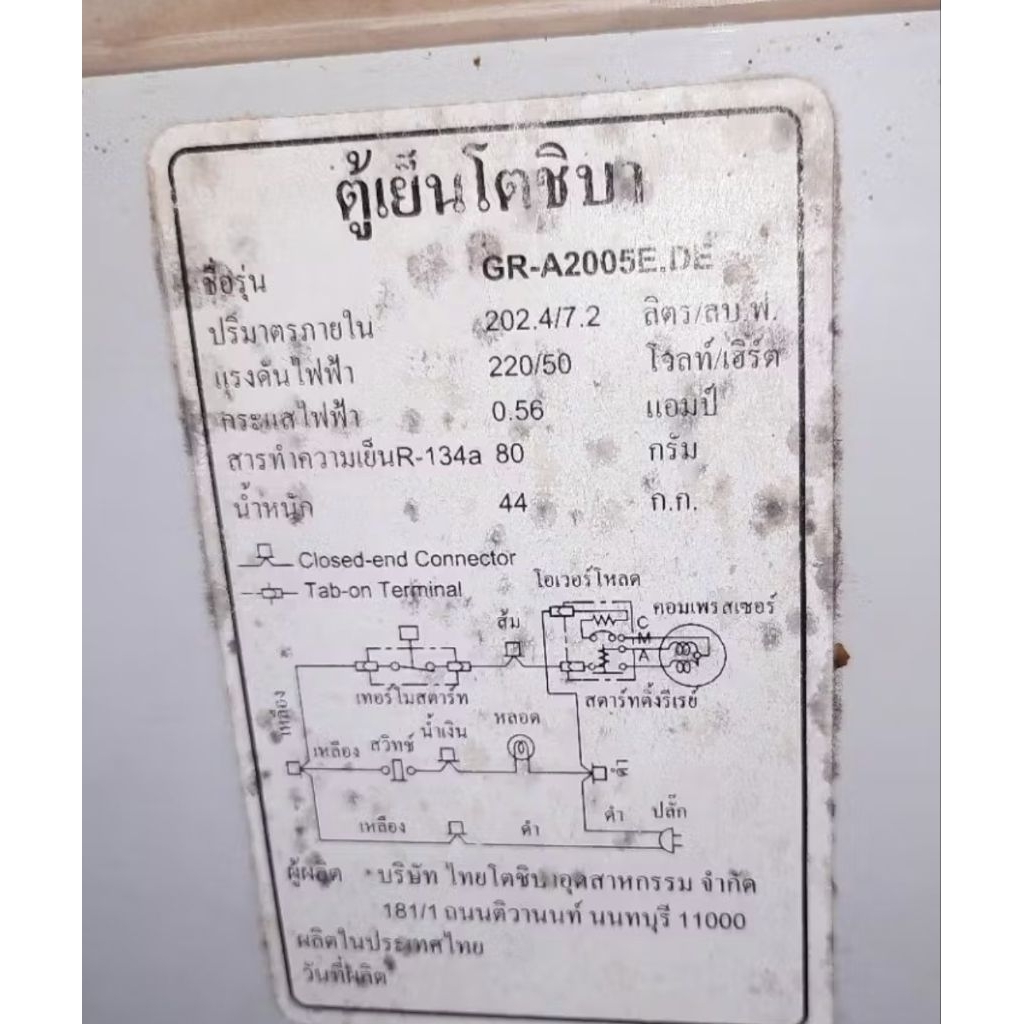 ตู้เย็นโตชิบา
ชื่อรุ่น GR-A2005E.DE
ปริมาตรภายใน 202.4/7.2 ลิตร/ลบ.ฟ.
แรงดันไฟฟ้า 220/50 โวลท์/เฮิร์ต
กระแสไฟฟ้า 0.56 แอมป์
สารทำความเย็นR-134a 80 กรัม
น้ำหนัก 44 ก.ก.
Closed-end Connector
Tab-on Terminal
โอเวอร์โหลด
คอมเพรสเซอร์
ส้ม
C
M
A
เทอร์โมสตาร์ท
สตาร์ทติ้งรีเรย์
เหลือง
เหลือง สวิทช์ น้ำเงิน หลอด
เหลือง ดำ ดำ ปลั๊ก
ผู้ผลิต บริษัท ไทยโตชิบาอุตสาหกรรม จำกัด
181/1 ถนนติวานนท์ นนทบุรี 11000
ผลิตในประเทศไทย
วันที่ผลิต